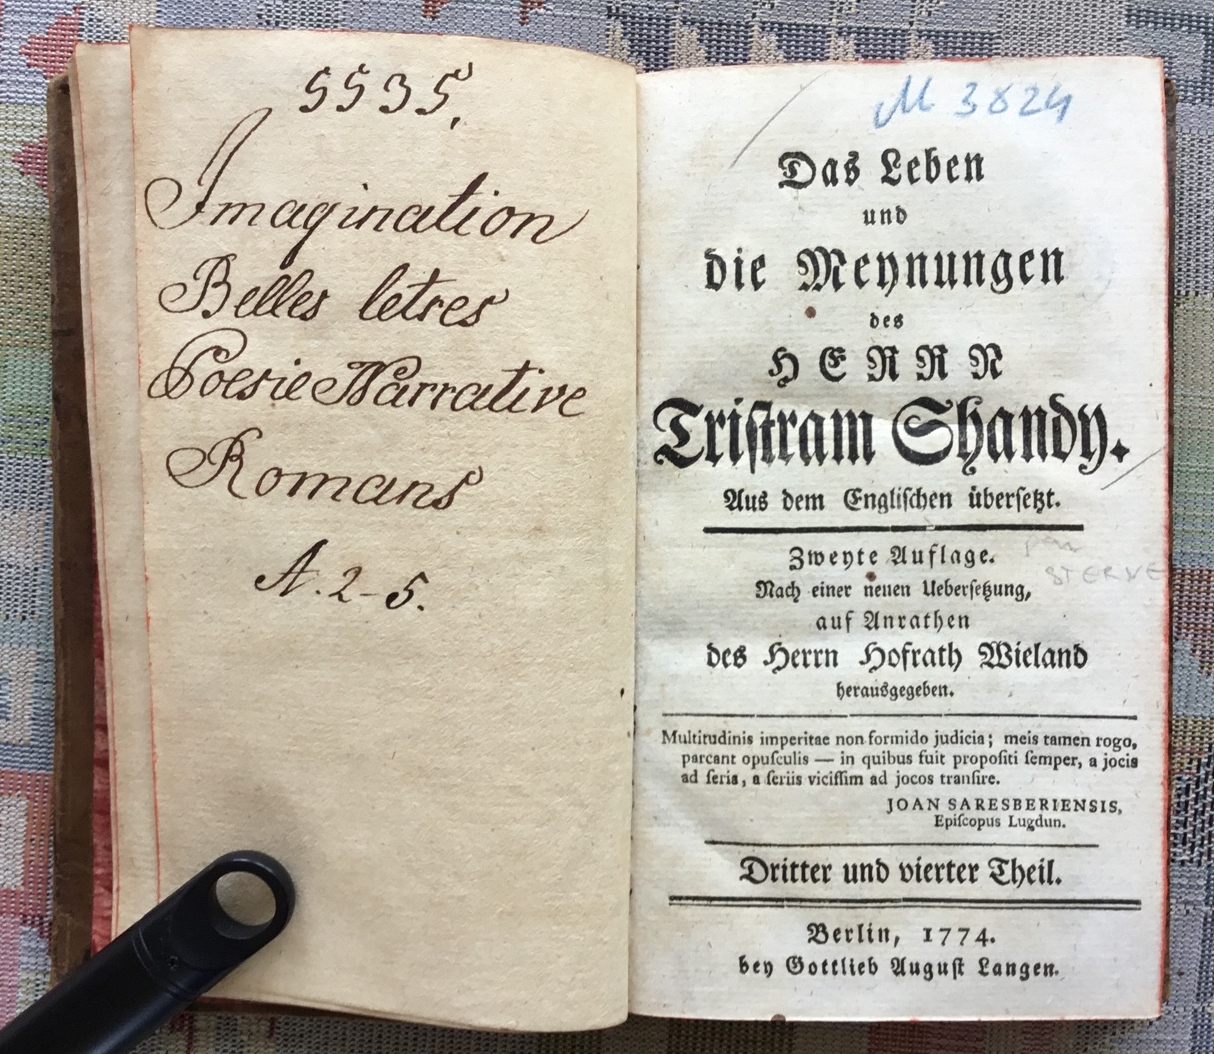 5535,
Imagination
Belles letres
Poesie Narrative
Romans
A. 2-5.
M 3824
Das Leben
und
die Meynungen
des
HERRN
Triſtram Shandy.
Aus dem Engliſchen überſetzt.
Zweyte Auflage.
par
STERNE
Nach einer neuen Ueberſetzung,
auf Anrathen
des Herrn Hofrath Wieland
herausgegeben.
Multitudinis imperitae non formido judicia; meis tamen rogo,
parcant opuſculis — in quibus fuit propoſiti ſemper, a jocis
ad ſeria, a ſeriis viciſſim ad jocos tranſire.
JOAN SARESBERIENSIS,
Epiſcopus Lugdun.
Dritter und vierter Theil.
Berlin, 1774.
bey Gottlieb Auguſt Langen.